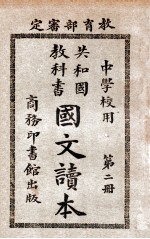 教育部審定
中學校用
第二冊
共和國
教科書
國文讀本
商務印書館出版